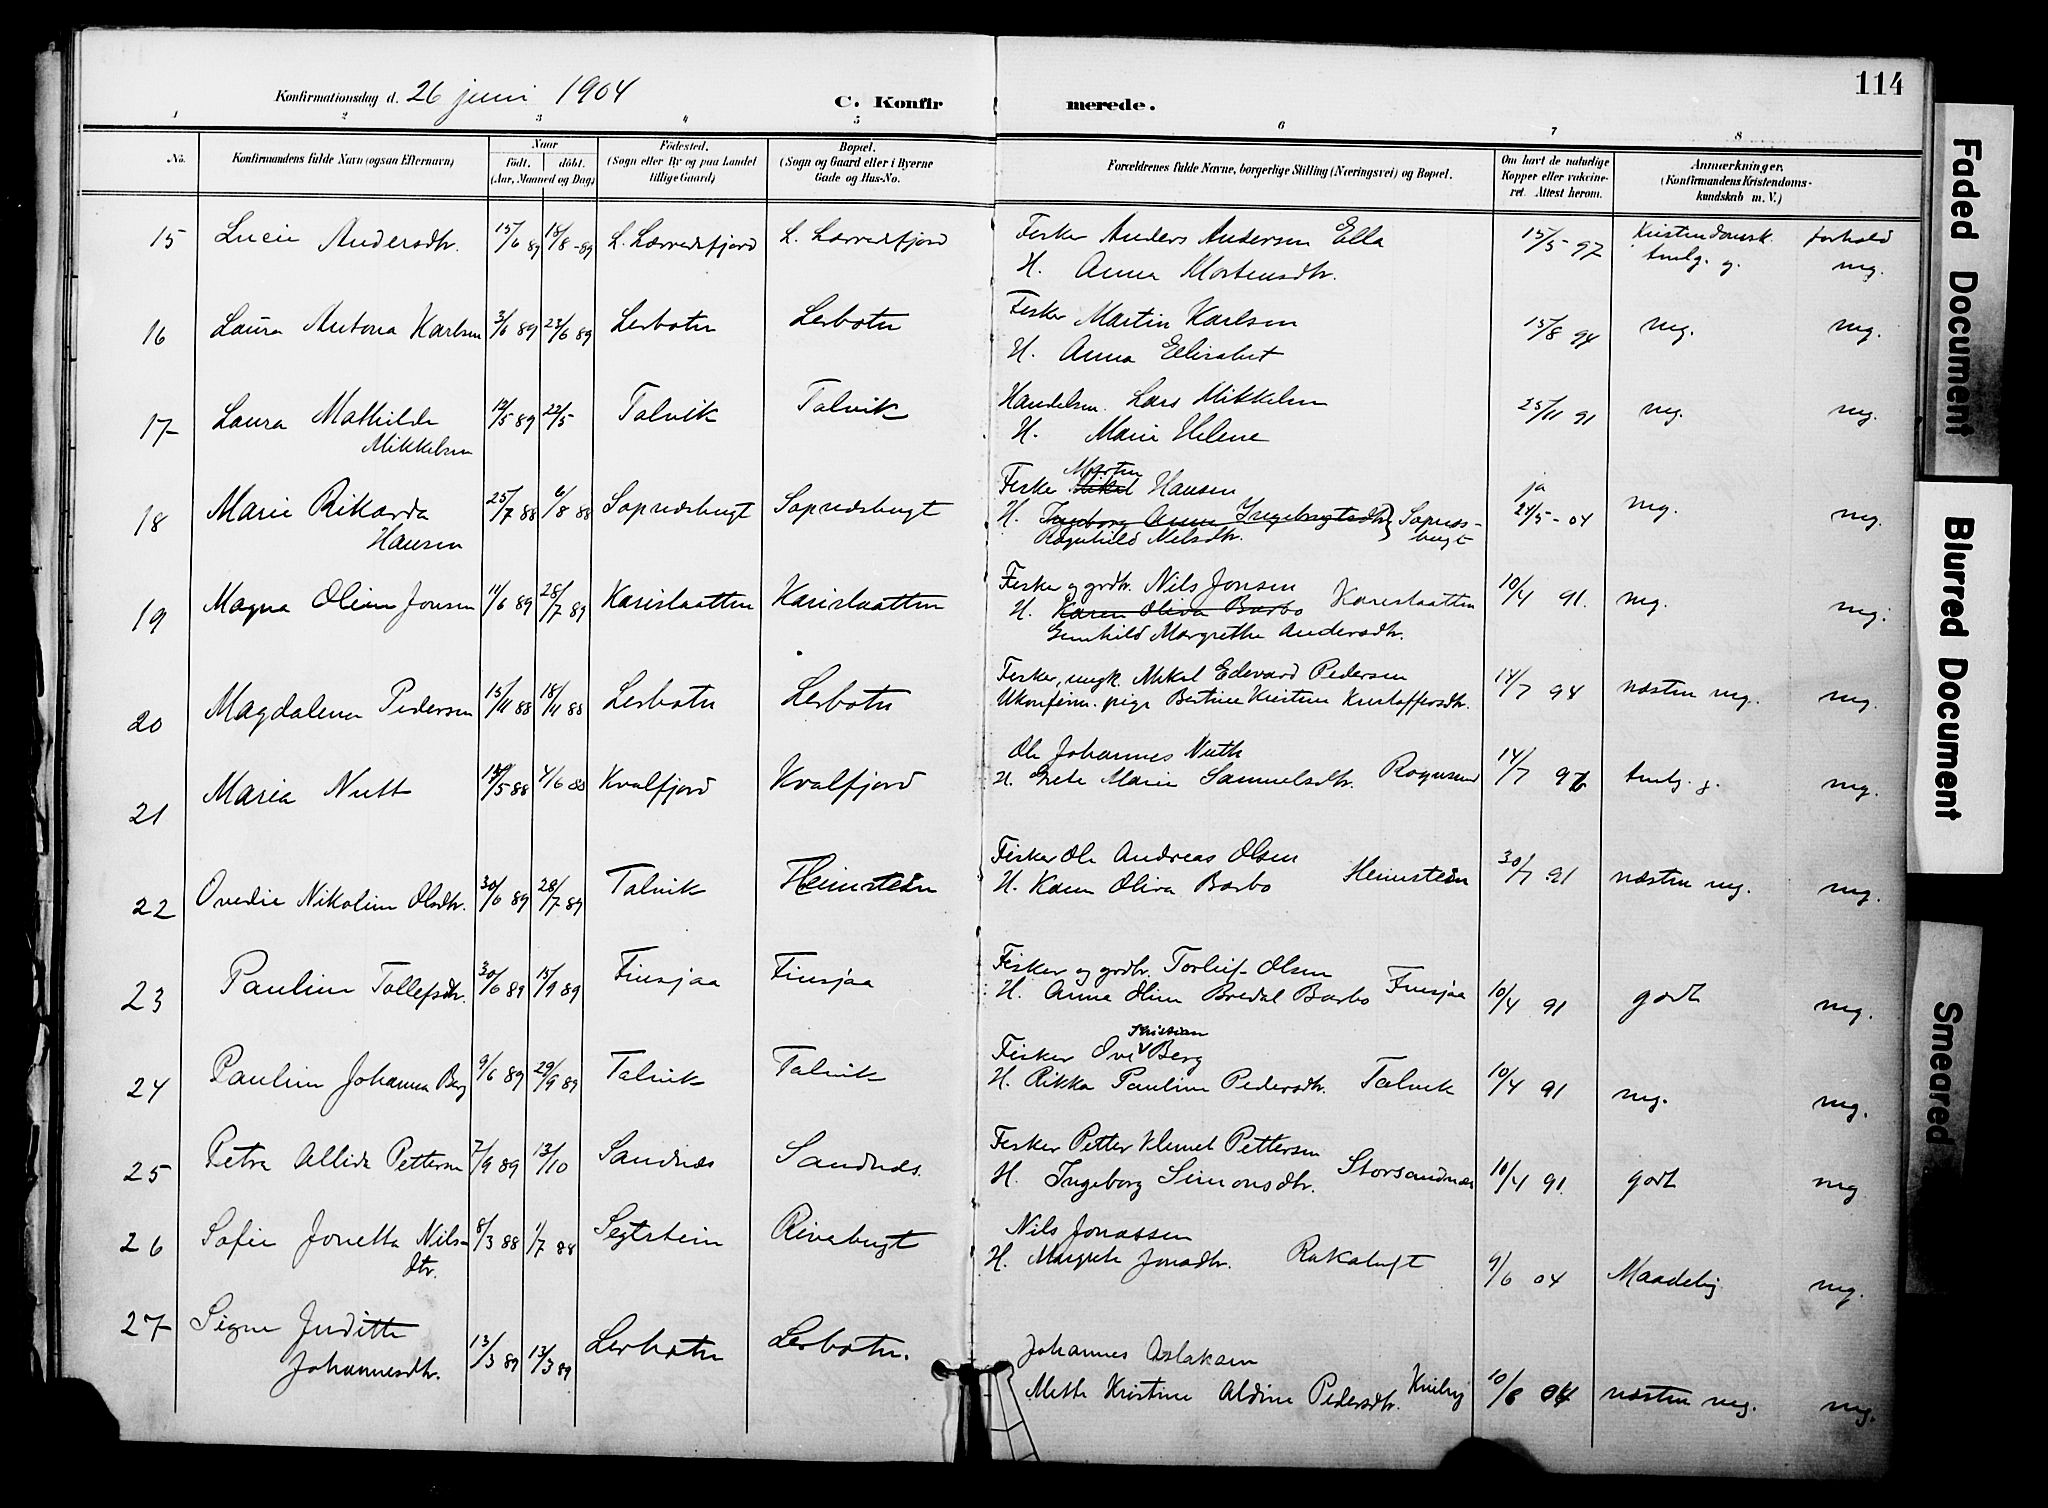 114
Konfirmationsdag d. 26 juni 1904
C. Konfirmerede.
1 2 3 4 5 6 7 8
No. Konfirmandens fulde Navn (ogsaa Efternavn) Naar født. døbt. (Aar, Maaned og Dag) Fødested. (Sogn eller By og paa Landet tillige Gaard) Bopæl. (Sogn og Gaard eller i Byerne Gade og Hus-No. Forældrenes fulde Navne, borgerlige Stilling (Næringsvei) og Bopæl. Om havt de naturlige Kopper eller vakcineret. Attest herom. Anmærkninger. (Konfirmandens Kristendomskundskab m. V.)
15 Lucie Andersdtr. 15/6 89 18/8-89 L. Lærredsfjord L. Lærredsfjord Fisker Anders Andersen Ella 15/5-97 Kristendomsk. forhold
H. Anna Mortensdtr. tmlg. g. mg.
16 Laura Antona Karlsen 3/6 89 23/6 89 Lerbotn Lerbotn Fisker Martin Karlsen 15/8 94 mg. mg.
H. Anna Ellisabet
17 Laura Mathilde 12/5 89 22/5 Talvik Talvik Handelsm. Lars Mikkelsen 25/11 91 mg. mg.
Mikkelsen H. Marie Helene
Morten
18 Marie Rikarda 25/7 88 6/8 88 Sopnesbugt Sopnesbugt Fisker Mikel Hansen ja 24/5-04 mg. mg.
Hansen H. Ingeborg Anna Ingebrigtsdtr. Sopnes-
Ragnhild Nilsdtr. bugt
19 Magna Oline Jonsen 11/6 89 28/7 89 Karislaatten Karislaatten Fisker og grdbr. Nils Jonsen 10/4 91. mg. mg.
H. Karen Oliva Barbo Karislaatten
Gunhild Margrethe Andersdtr.
20 Magdalena Pedersen 15/11 88 18/11 88 Lerbotn Lerbotn Fisker, ungk. Mikal Edevard Pedersen 14/7 94 næsten mg. mg.
Ukonfirm. pige Bertine Kristine Kristoffersdtr.
21 Maria Nutt /5 88 4/6 88 Kvalfjord Kvalfjord Ole Johannes Nutt 14/7 tmlg. g. mg.
H. Grete Marie Samuelsdtr. Rognsund
22 Ovedie Nikoline Olsdtr. 30/6 89 28/7 89 Talvik Heimstein Fisker Ole Andreas Olsen 30/7 91 næsten mg. mg.
H. Karen Oliva Barbo Heimstein
23 Pauline Tollefsdtr. 30/6 89 15/9 89 Finsjaa Finsjaa Fisker og grdbr. Torleif Olsen 10/4 91 godt mg.
H. Anna Oline Bredal Barbo Finsjaa
Kristian
24 Pauline Johanna Berg 9/6 89 29/9 89 Talvik Talvik Fisker Ove Berg 10/4 91 mg. mg.
H. Rikka Pauline Pedersdtr. Talvik
25 Petra Allida Pettersen 7/9 89 13/10 Sandnes Sandnes. Fisker Petter Klemet Pettersen 10/4 91. godt mg
H. Ingeborg Simonsdtr. Storsandnes
26 Sofie Jonetta Nils- 8/3 88 1/7 88 Segtstein Rivabugt Nils Jonassen 9/6 04 Maadelig mg.
dtr. H. Margrete Jonsdtr. Rakaluft
27 Signe Juditte 13/3 89 13/3 89 Lerbotn Lerbotn. Johannes Aslaksen
Johannesdtr. Mette Kristine Aldine Pedersdtr. 10/6 04 næsten mg. mg.
Faded Document
Blurred Document
Smeared